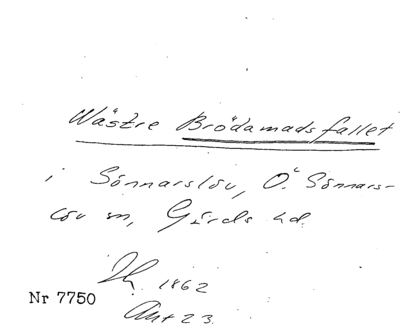 Wästre Brödamadsfallet
i Sönnarslöv, Ö. Sönnars-
löv sn, Gärds hd.
1862
Nr 7750
Akt 23.